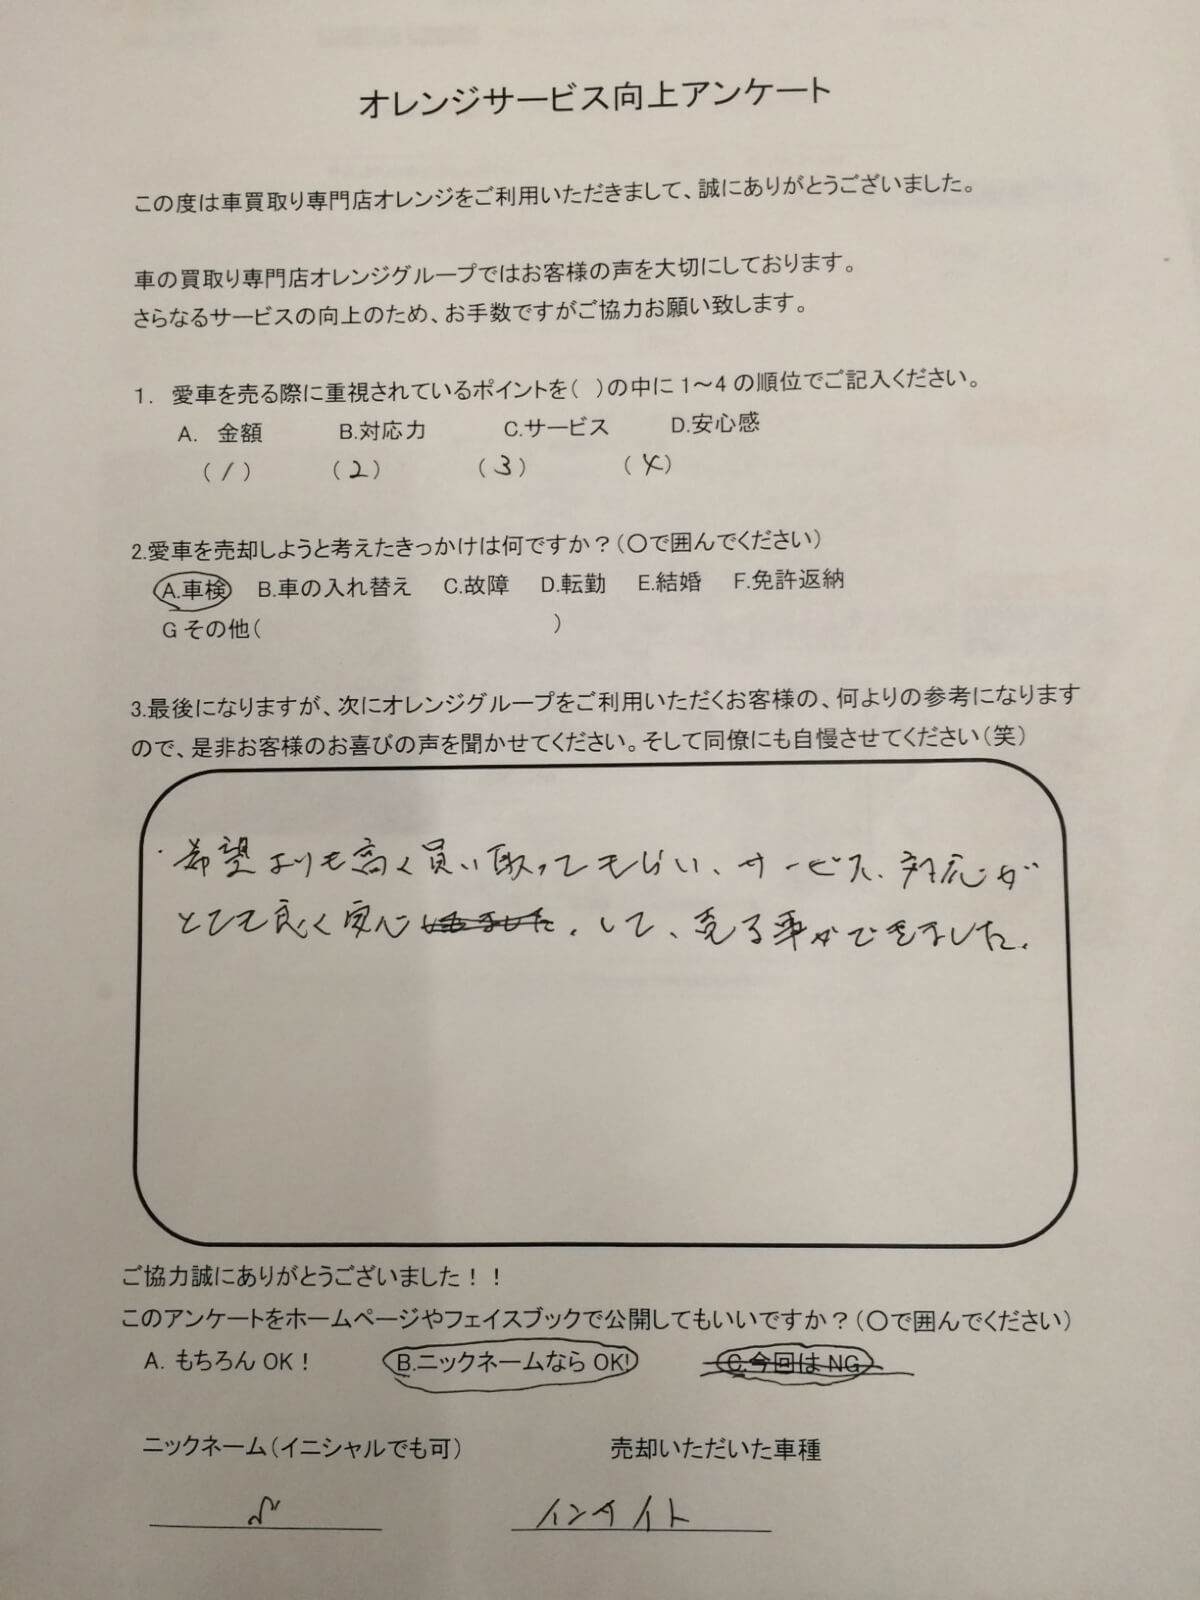 オレンジサービス向上アンケート
この度は車買取り専門店オレンジをご利用いただきまして、誠にありがとうございました。
車の買取り専門店オレンジグループではお客様の声を大切にしております。
さらなるサービスの向上のため、お手数ですがご協力お願い致します。
1. 愛車を売る際に重視されているポイントを( )の中に1〜4の順位でご記入ください。
A. 金額 B.対応力 C.サービス D.安心感
(1) (2) (3) (4)
2.愛車を売却しようと考えたきっかけは何ですか?(〇で囲んでください)
A.車検 B.車の入れ替え C.故障 D.転勤 E.結婚 F.免許返納
G その他( )
3.最後になりますが、次にオレンジグループをご利用いただくお客様の、何よりの参考になります
ので、是非お客様のお喜びの声を聞かせてください。そして同僚にも自慢させてください(笑)
・希望よりも高く買い取ってもらい、サービス、対応が
とても良く安心しました。して、売る事ができました。
ご協力誠にありがとうございました!!
このアンケートをホームページやフェイスブックで公開してもいいですか?(〇で囲んでください)
A. もちろんOK! B.ニックネームならOK! C.今回はNG
ニックネーム(イニシャルでも可) 売却いただいた車種
インサイト